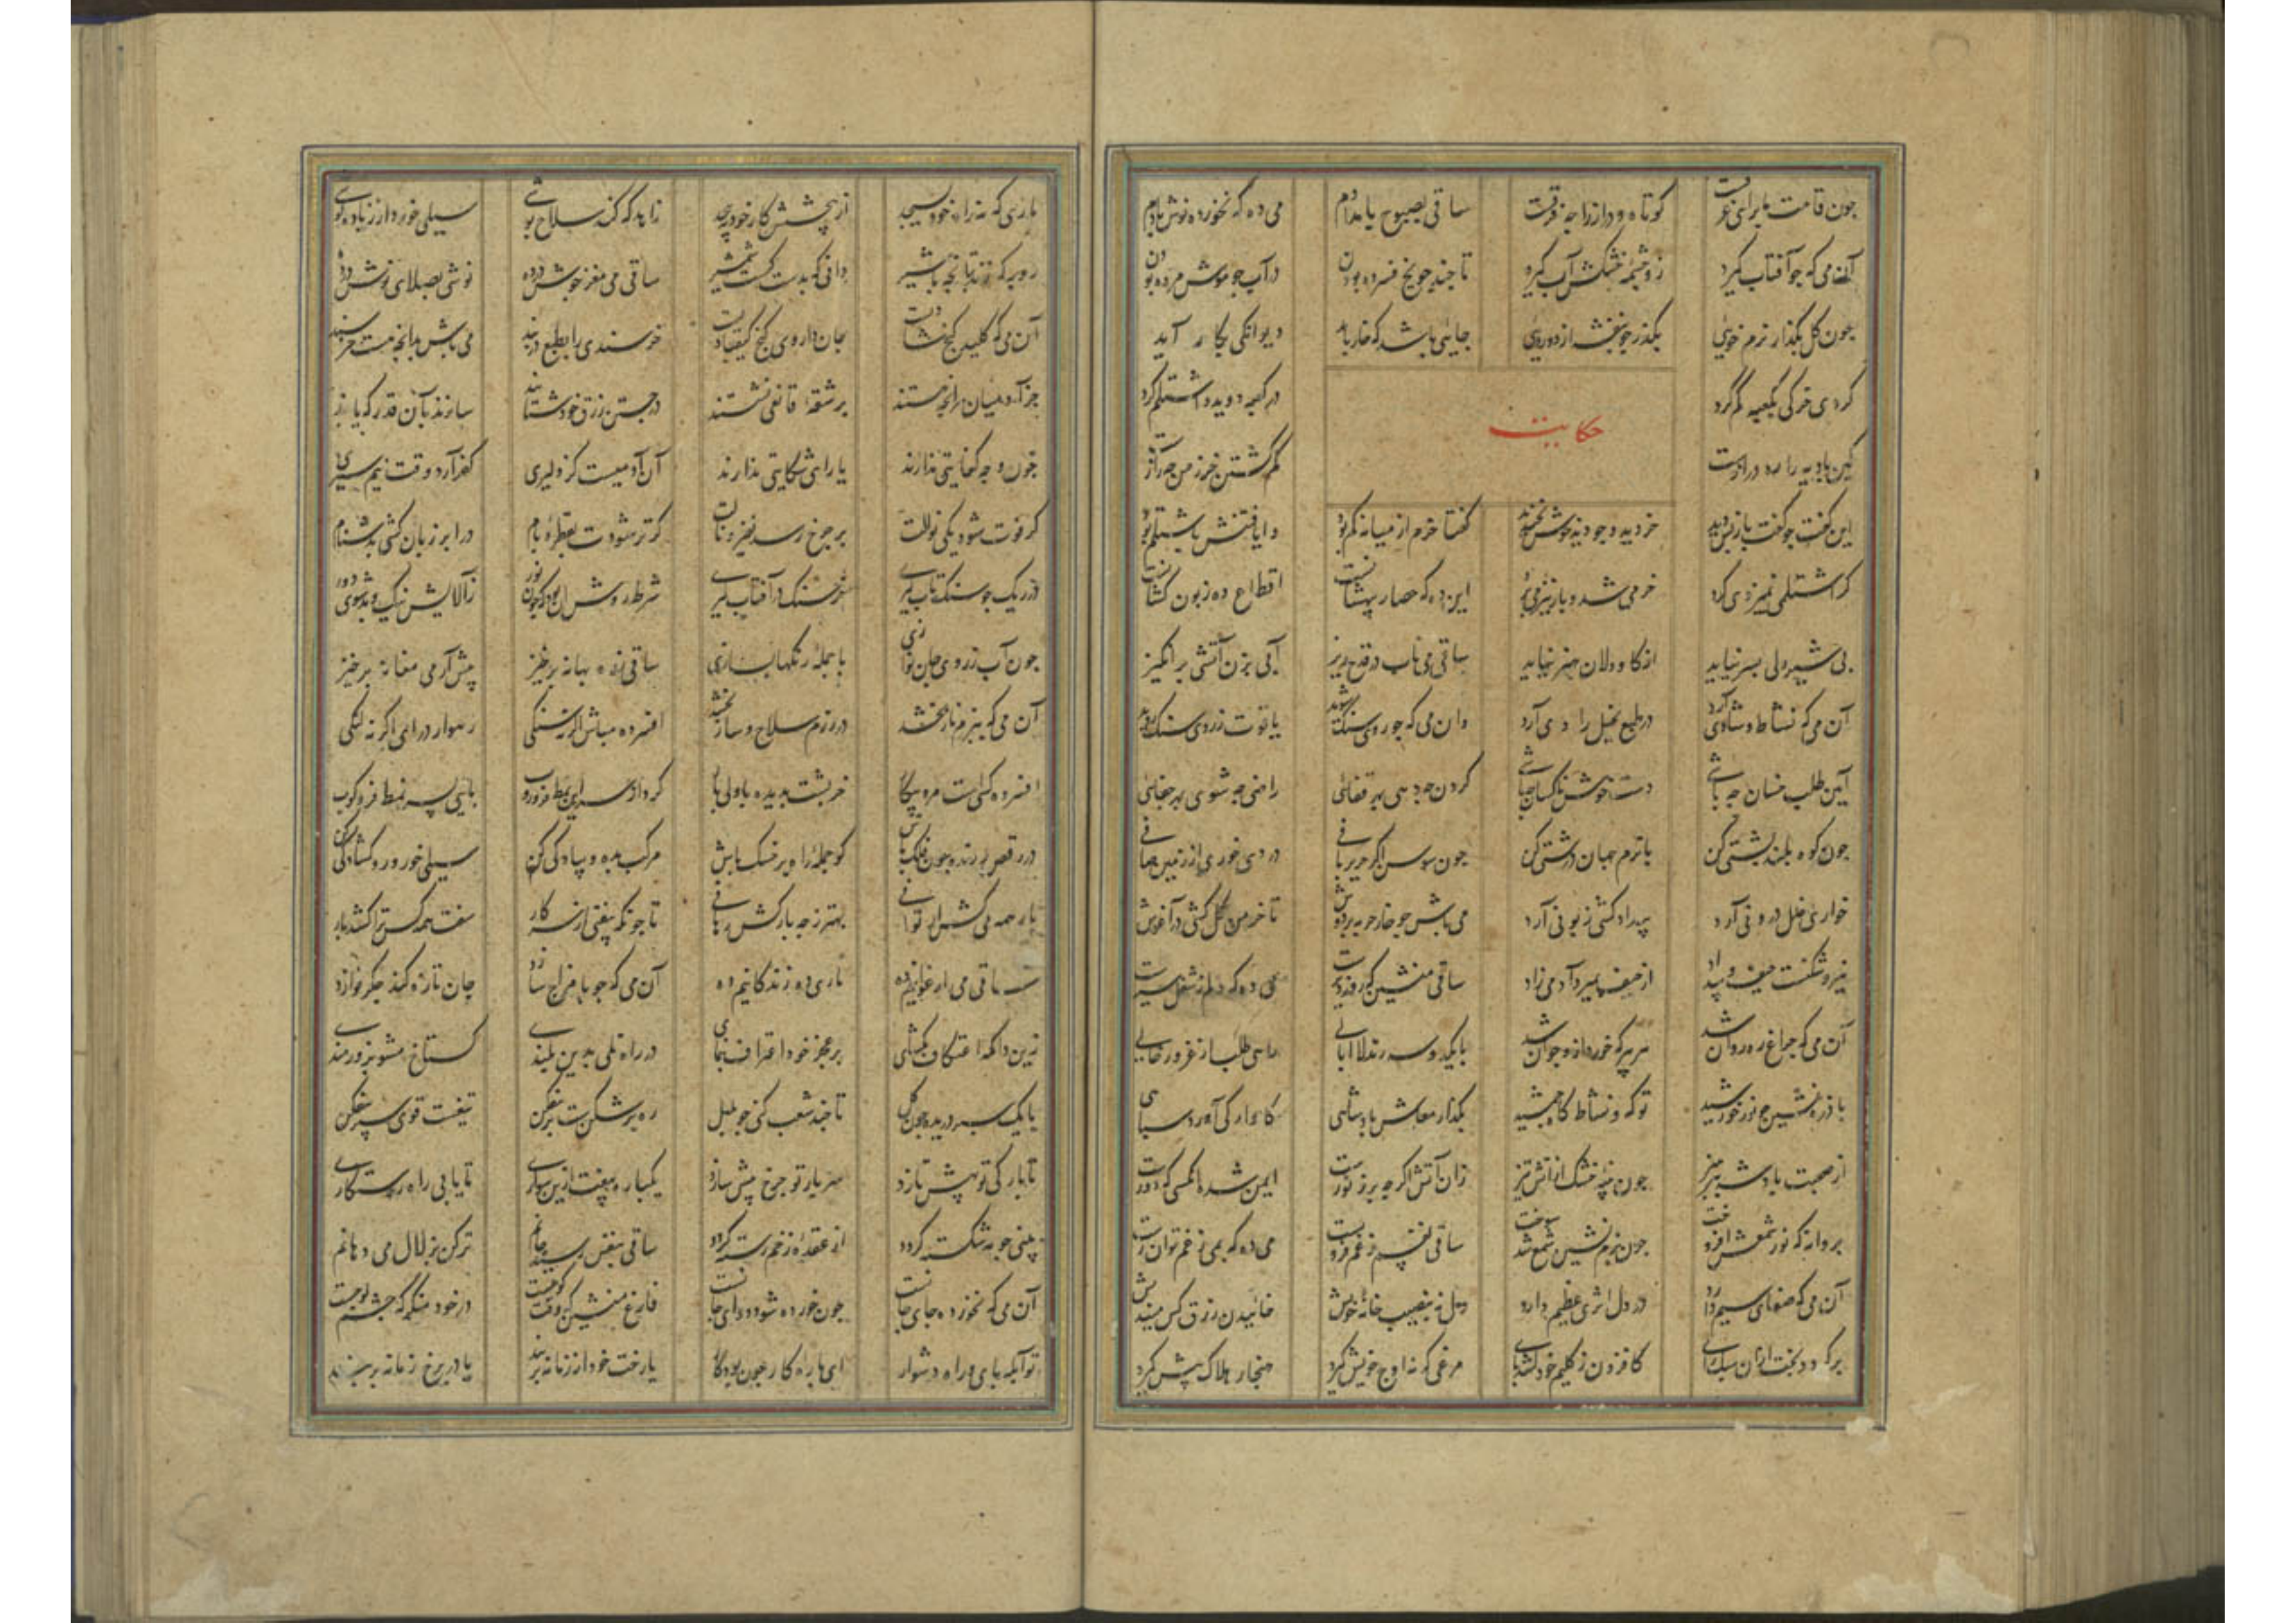 چون قامت ما برای غرقست کوتاه و دراز را چه فرقست ساقی بصبوح بامدادم می ده که نخورده نوش بادم
آن می که چو آفتاب گیرد زو چشمه خشک آب گیرد تا چند چو یخ فسرده بودن در آب چو موش مرده بودن
چون گل بگذار نرم خویی بگذر چو بنفشه از دورویی جایی باشد که خار باید دیوانگی بکار آید
کردی خرکی بکعبه گم کرد در کعبه دوید و اشتلم کرد
حکایت
کین بادیه را ره درازست گم گشتن خر ز من چه رازست
این گفت چو گفت باز پس دید خر دید و چو دید خوش بخندید گفتا خرم از میانه گم بود وایافتنش باشتلم بود
گر اشتلمی نمیزدی کرد خر می شد و بار نیز می برد این ده که حصار بیهشانست اقطاع ده زبون کشانست
بی شیردلی بسر نیاید از گاودلان هنر نیاید ساقی می ناب در قدح ریز آبی بزن آتشی برانگیز
آن می که نشاط و شادی آرد در طبع بخیل رادی آرد وان می که چو روی سنگ شوید یاقوت ز روی سنگ روید
آیین طلب خسان چه باشی دست خوش ناکسان چه باشی گردن چه دهی بهر قفایی راضی چه شوی بهر جفایی
چون کوه بلند پشتی کن با نرم جهان درشتی کن چون سوسن اگر حریر بافی دردی خوری از زمین صافی
خواری خلل درونی آرد بیداد کشی زبونی آرد می باش چو خار حربه بر دوش تا خرمن گل کشی در آغوش
نیرو شکنست حیف و بیداد از حیف بمیرد آدمی زاد ساقی منشین که روز دیرست می ده که دلم ز شغل سیرست
آن می که چراغ رهروان شد هر پیر که خورد ازو جوان شد با یک دو سه رند لاابالی راهی طلب از غرور خالی
با ذره نشین چو نور خورشید تو کی و نشاط گاه جمشید بگذار معاش پادشاهی کاوارگی آورد سپاهی
از صحبت پادشه بپرهیز چون پنبه خشک از آتش تیز زان آتش اگر چه پر ز نورست ایمن شده آنکسی که دورست
پروانه که نور شمعش افروخت چون بزم نشین شمع شد سوخت ساقی نفسم ز غم فروبست می ده که بمی ز غم توان رست
آن می که صفای سیم دارد در دل اثری عظیم دارد دل نه بنصیب خانه خویش خاییدن رزق کس میندیش
برگردد بخت ازان سبک رای کافزون ز گلیم خود کشد پای مرغی که نه اوج خویش گیرد هنجار هلاک پیش گیرد
ماری که نه راه خود بسیچد از پیچش کار خود بپیچد زاهد که کند سلاح پوشی سیلی خورد از زیاده کوشی
روبه که زند تپانچه با شیر دانی که بدست کیست شمشیر ساقی می مغز جوش در ده نوشی بصلای نوش در ده
آن می که کلید گنج شادیست جان داروی گنج کیقبادیست خرسندی را بطبع دربند می باش بدانچه هست خرسند
جز آدمیان هرآنچه هستند بر شقه قانعی نشستند در جستن رزق خود شتابند سازند بآن قدر که یابند
چون وجه کفایتی ندارند یارای شکایتی ندارند آن آدمیست کز دلیری کفر آرد وقت نیم سیری
گر فوت شود یکی نوالت بر چرخ رسد نفیر و نالت گر تر شودت بقطره بام در ابر زبان کشی بدشنام
ور یک جو سنگ تاب گیری خرسنگ در آفتاب گیری شرط روش آن بود که چون نور زآلایش نیک و بد شوی دور
چون آب ز روی جان نوازی با جمله رنگها بسازی ساقی ز ره بهانه برخیز پیش آر می مغانه برخیز
آن می که ببزم ناز بخشد در رزم سلاح و ساز بخشد افسرده مباش اگر نه سنگی رهوار درای اگر نه لنگی
افسرده کسی است مرد بیکار گرد از سر این نمط فرو روب پایی بسر نمط فرو کوب
در رقص رونده چون فلک باش گو جمله راه پر خسک باش مرکب بده و پیادگی کن سیلی خور و رو گشادگی کن
بار همه می کش ار توانی بهتر ز چه بارکش رهانی تا چونکه بیفتی از سر کار سفت همه کس ترا کشد بار
ساقی می ارغوانیم ده یاری ده زندگانیم ده آن می که چو با مزاج سازد جان تازه کند جگر نوازد
زین دامگه اعتکاف بگشای بر عجز خود اعتراف بنمای در راه تلی بدین بلندی گستاخ مشو بزورمندی
با یک سپر دریده چون گل تا چند شغب کنی چو بلبل ره پر شکن است پر بیفکن تیغست قوی سپر بیفکن
تا بارگی تو پیش تازد سربار تو چرخ بیش سازد یکباره بیفت ازین سواری تا یابی راه رستگاری
بینی چو به شکسته گردد از عقده زخم رسته گردد ساقی بنفس رسید جانم تر کن بزلال می دهانم
آن می که نخورده جای جانست چون خورده شود دوای جانست فارغ منشین که وقت کوچست در خود منگر که چشم لوچست
تو آبله پای و راه دشوار ای پاره کار چون بود کار یا رخت خود از زمانه بربند یا در برخ زمانه بربند